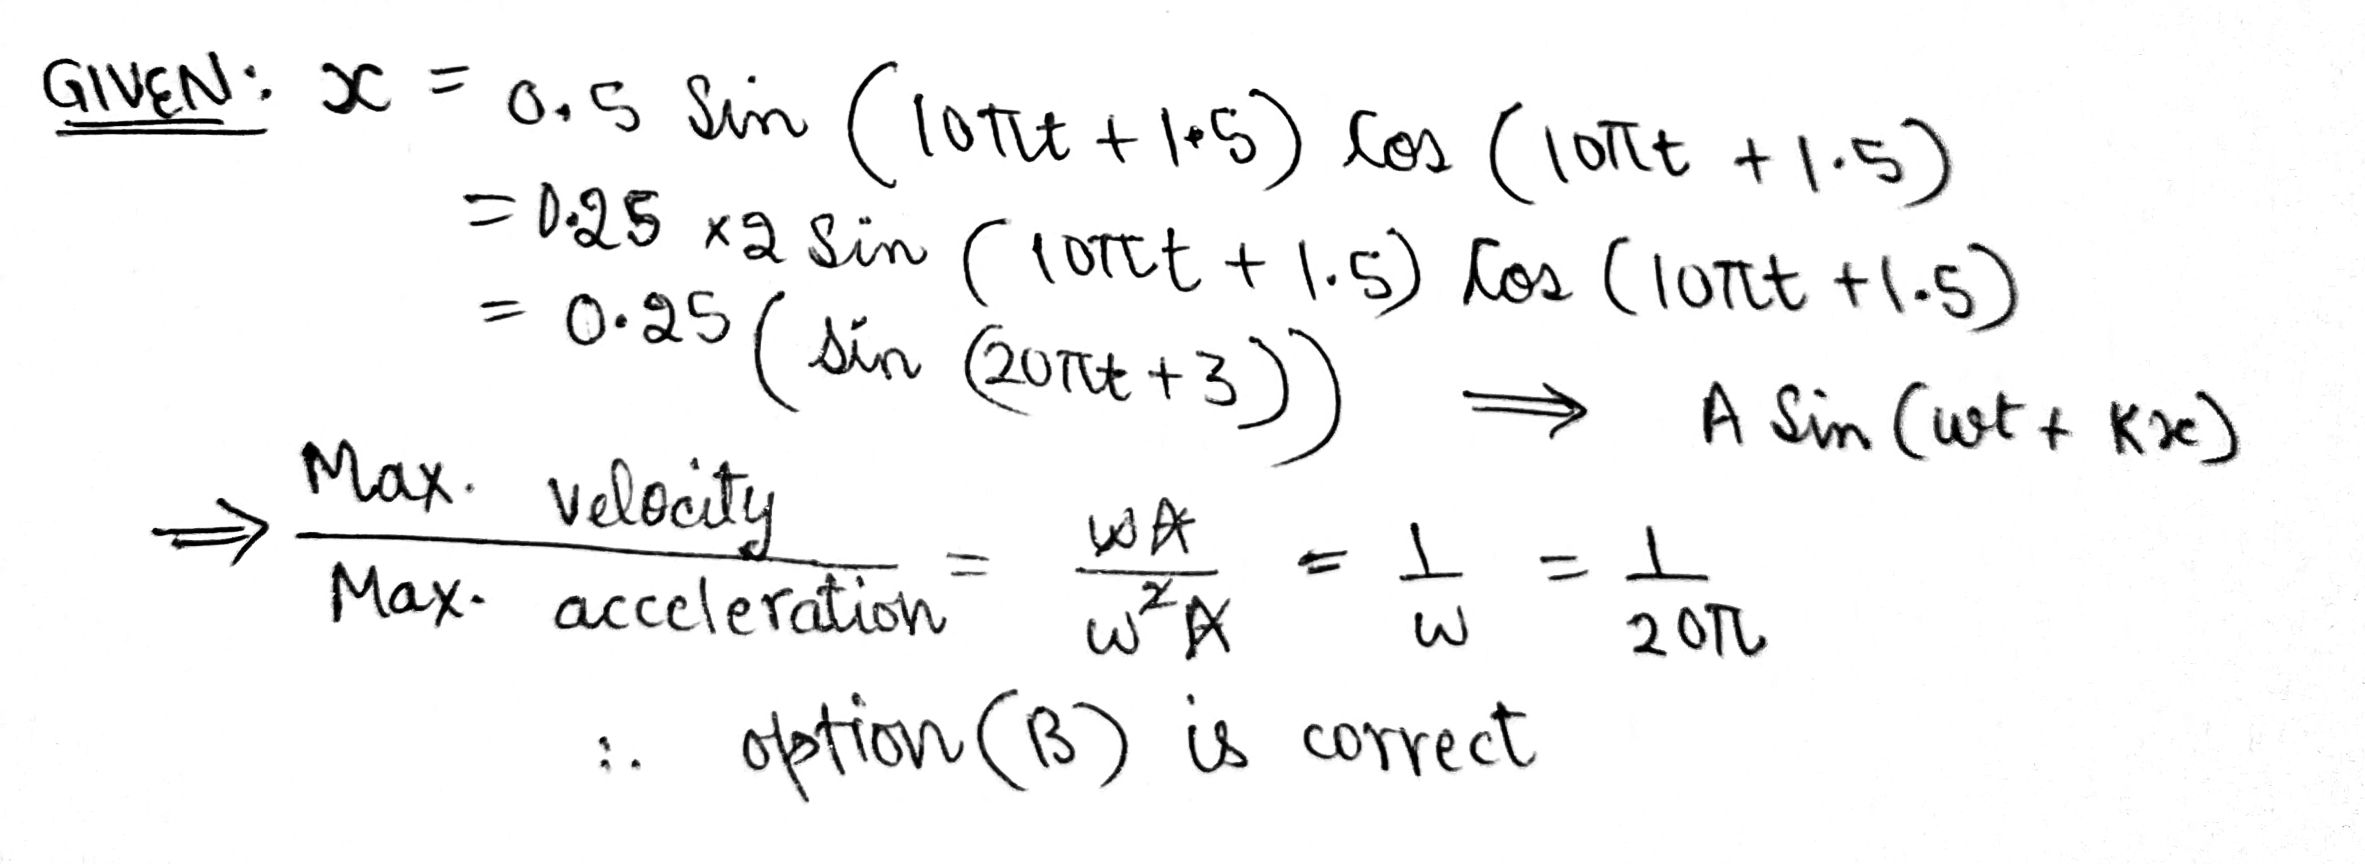 GIVEN: x = 0.5 Sin (10πt + 1.5) Cos (10πt + 1.5)
= 0.25 ×2 Sin (10πt + 1.5) Cos (10πt + 1.5)
= 0.25 (sin (20πt + 3)) ⟹ A Sin (ωt + Kx)
⟹ Max. velocity / Max. acceleration = ωA / ω²A = 1/ω = 1/20π
∴ option (B) is correct